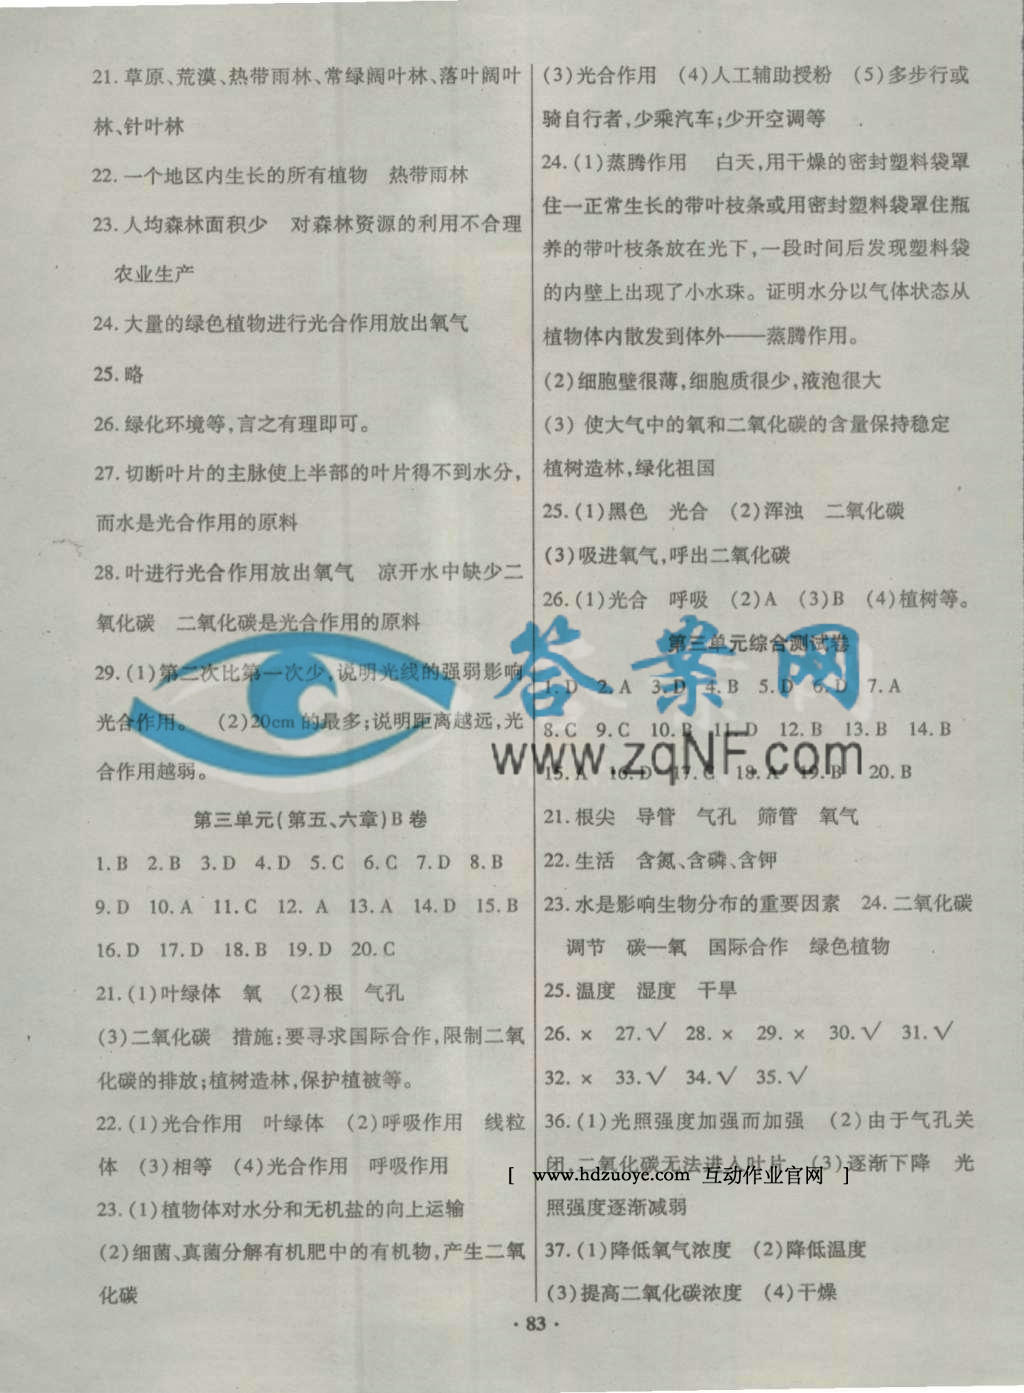 21. 草原、荒漠、热带雨林、常绿阔叶林、落叶阔叶
林、针叶林
22. 一个地区内生长的所有植物　热带雨林
23. 人均森林面积少　对森林资源的利用不合理
农业生产
24. 大量的绿色植物进行光合作用放出氧气
25. 略
26. 绿化环境等,言之有理即可。
27. 切断叶片的主脉使上半部的叶片得不到水分,
而水是光合作用的原料
28. 叶进行光合作用放出氧气　凉开水中缺少二
氧化碳　二氧化碳是光合作用的原料
29. (1)第二次比第一次少,说明光线的强弱影响
光合作用。　(2)20cm 的最多;说明距离越远,光
合作用越弱。
第三单元(第五、六章)B 卷
1. B　2. B　3. D　4. D　5. C　6. C　7. D　8. B
9. D　10. A　11. C　12. A　13. A　14. D　15. B
16. D　17. D　18. B　19. D　20. C
21. (1)叶绿体　氧　(2)根　气孔
(3)二氧化碳　措施:要寻求国际合作,限制二氧
化碳的排放;植树造林,保护植被等。
22. (1)光合作用　叶绿体　(2)呼吸作用　线粒
体　(3)相等　(4)光合作用　呼吸作用
23. (1)植物体对水分和无机盐的向上运输
(2)细菌、真菌分解有机肥中的有机物,产生二氧
化碳
(3)光合作用　(4)人工辅助授粉　(5)多步行或
骑自行者,少乘汽车;少开空调等
24. (1)蒸腾作用　白天,用干燥的密封塑料袋罩
住一正常生长的带叶枝条或用密封塑料袋罩住瓶
养的带叶枝条放在光下,一段时间后发现塑料袋
的内壁上出现了小水珠。证明水分以气体状态从
植物体内散发到体外——蒸腾作用。
(2)细胞壁很薄,细胞质很少,液泡很大
(3) 使大气中的氧和二氧化碳的含量保持稳定
植树造林,绿化祖国
25. (1)黑色　光合　(2)浑浊　二氧化碳
(3)吸进氧气,呼出二氧化碳
26. (1)光合　呼吸　(2)A　(3)B　(4)植树等。
第三单元综合测试卷
1. D　2. A　3. D　4. B　5. D　6. D　7. A
8. C　9. C　10. B　11. D　12. B　13. B　14. B
15. A　16. D　17. C　18. A　19. B　20. B
21. 根尖　导管　气孔　筛管　氧气
22. 生活　含氮、含磷、含钾
23. 水是影响生物分布的重要因素　24. 二氧化碳
调节　碳—氧　国际合作　绿色植物
25. 温度　湿度　干旱
26. ×　27. √　28. ×　29. ×　30. √　31. √
32. ×　33. √　34. √　35. √
36. (1)光照强度加强而加强　(2)由于气孔关
闭,二氧化碳无法进入叶片　(3)逐渐下降　光
照强度逐渐减弱
37. (1)降低氧气浓度　(2)降低温度
(3)提高二氧化碳浓度　(4)干燥
· 83 ·
答案网
www.zqNF.com
[ www.hdzuoye.com 互动作业官网 ]